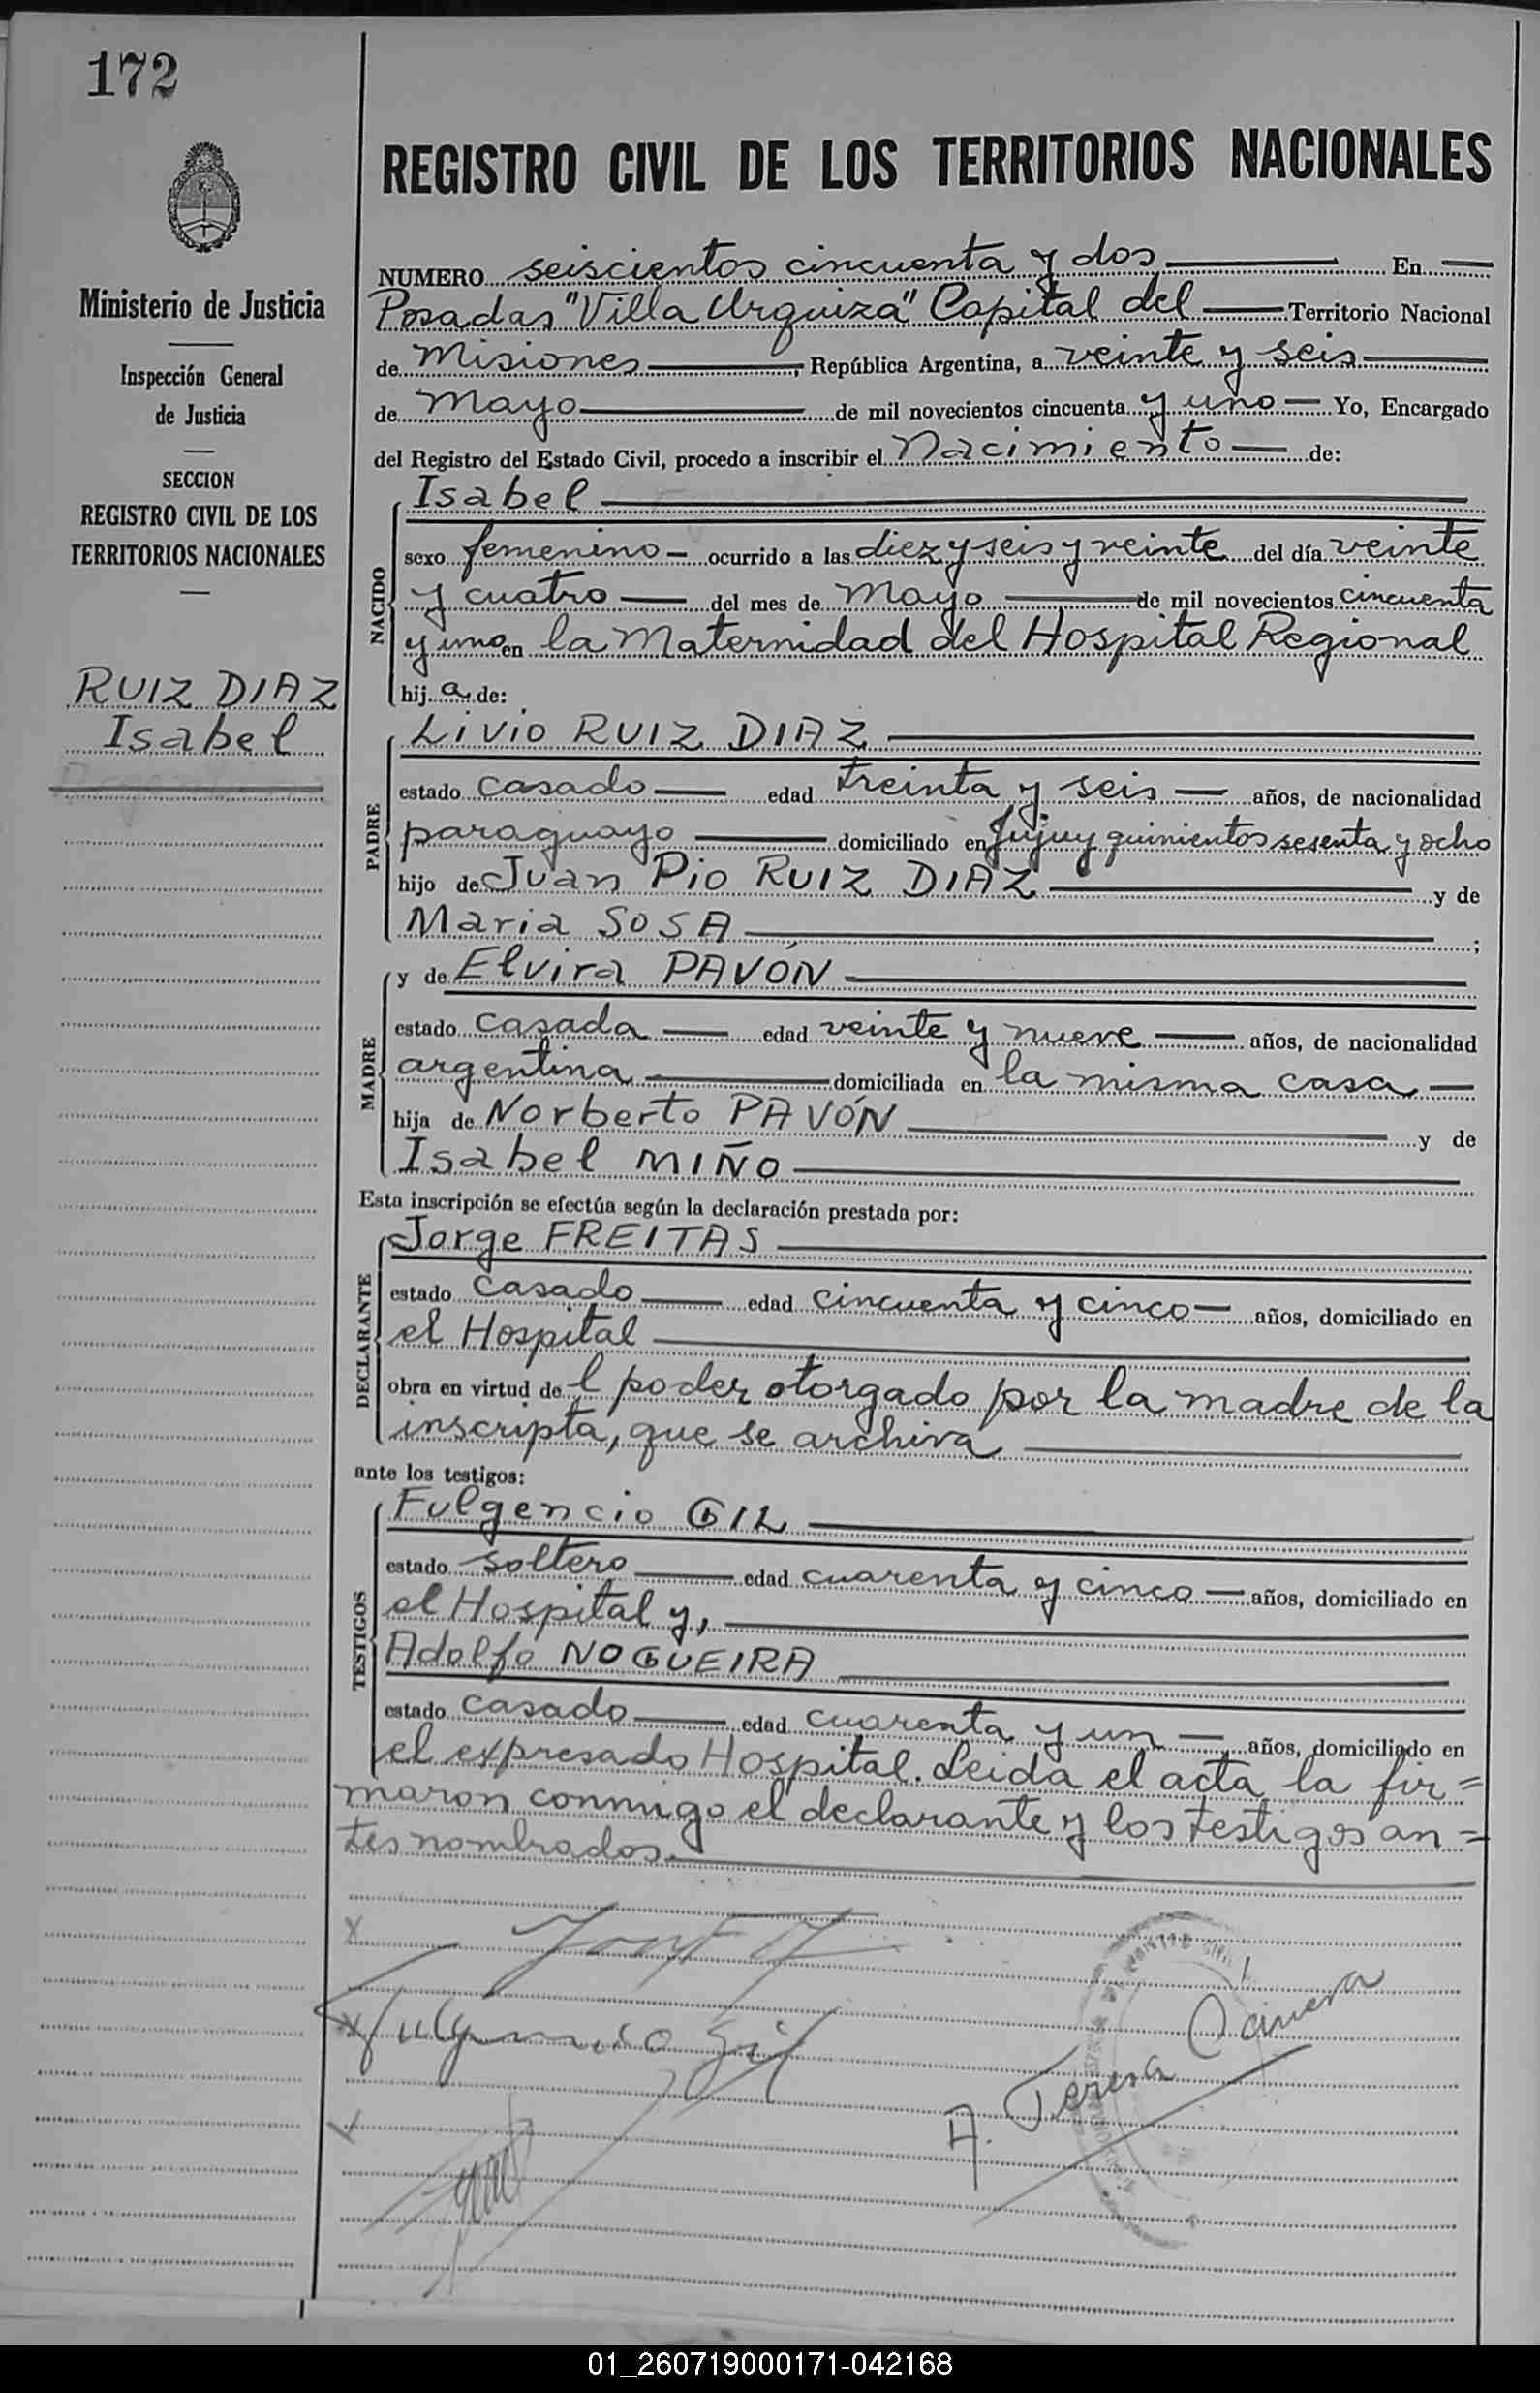 172
REGISTRO CIVIL DE LOS TERRITORIOS NACIONALES
Ministerio de Justicia
Inspección General
de Justicia
SECCION
REGISTRO CIVIL DE LOS
TERRITORIOS NACIONALES
RUIZ DIAZ
Isabel
NUMERO seiscientos cincuenta y dos En
Posadas "Villa Urquiza" Capital del Territorio Nacional
de Misiones, República Argentina, a veinte y seis
de mayo de mil novecientos cincuenta y uno Yo, Encargado
del Registro del Estado Civil, procedo a inscribir el Nacimiento de:
NACIDO
Isabel
sexo femenino ocurrido a las diez y seis y veinte del día veinte
y cuatro del mes de mayo de mil novecientos cincuenta
y uno en la Maternidad del Hospital Regional
hij a de:
PADRE
Livio RUIZ DIAZ
estado casado edad treinta y seis años, de nacionalidad
paraguayo domiciliado en Jujuy quinientos sesenta y ocho
hijo de Juan Pio RUIZ DIAZ y de
Maria SOSA ;
MADRE
y de Elvira PAVÓN
estado casada edad veinte y nueve años, de nacionalidad
argentina domiciliada en la misma casa
hija de Norberto PAVÓN y de
Isabel MIÑO
Esta inscripción se efectúa según la declaración prestada por:
DECLARANTE
Jorge FREITAS
estado casado edad cincuenta y cinco años, domiciliado en
el Hospital
obra en virtud de l poder otorgado por la madre de la
inscripta, que se archiva
ante los testigos:
TESTIGOS
Fulgencio GIL
estado soltero edad cuarenta y cinco años, domiciliado en
el Hospital y,
Adolfo NOGUEIRA
estado casado edad cuarenta y un años, domiciliado en
el expresado Hospital. Leida el acta la fir=
maron conmigo el declarante y los testigos an=
tes nombrados.
Fulgencio Gil
A. Teresa
01_260719000171-042168